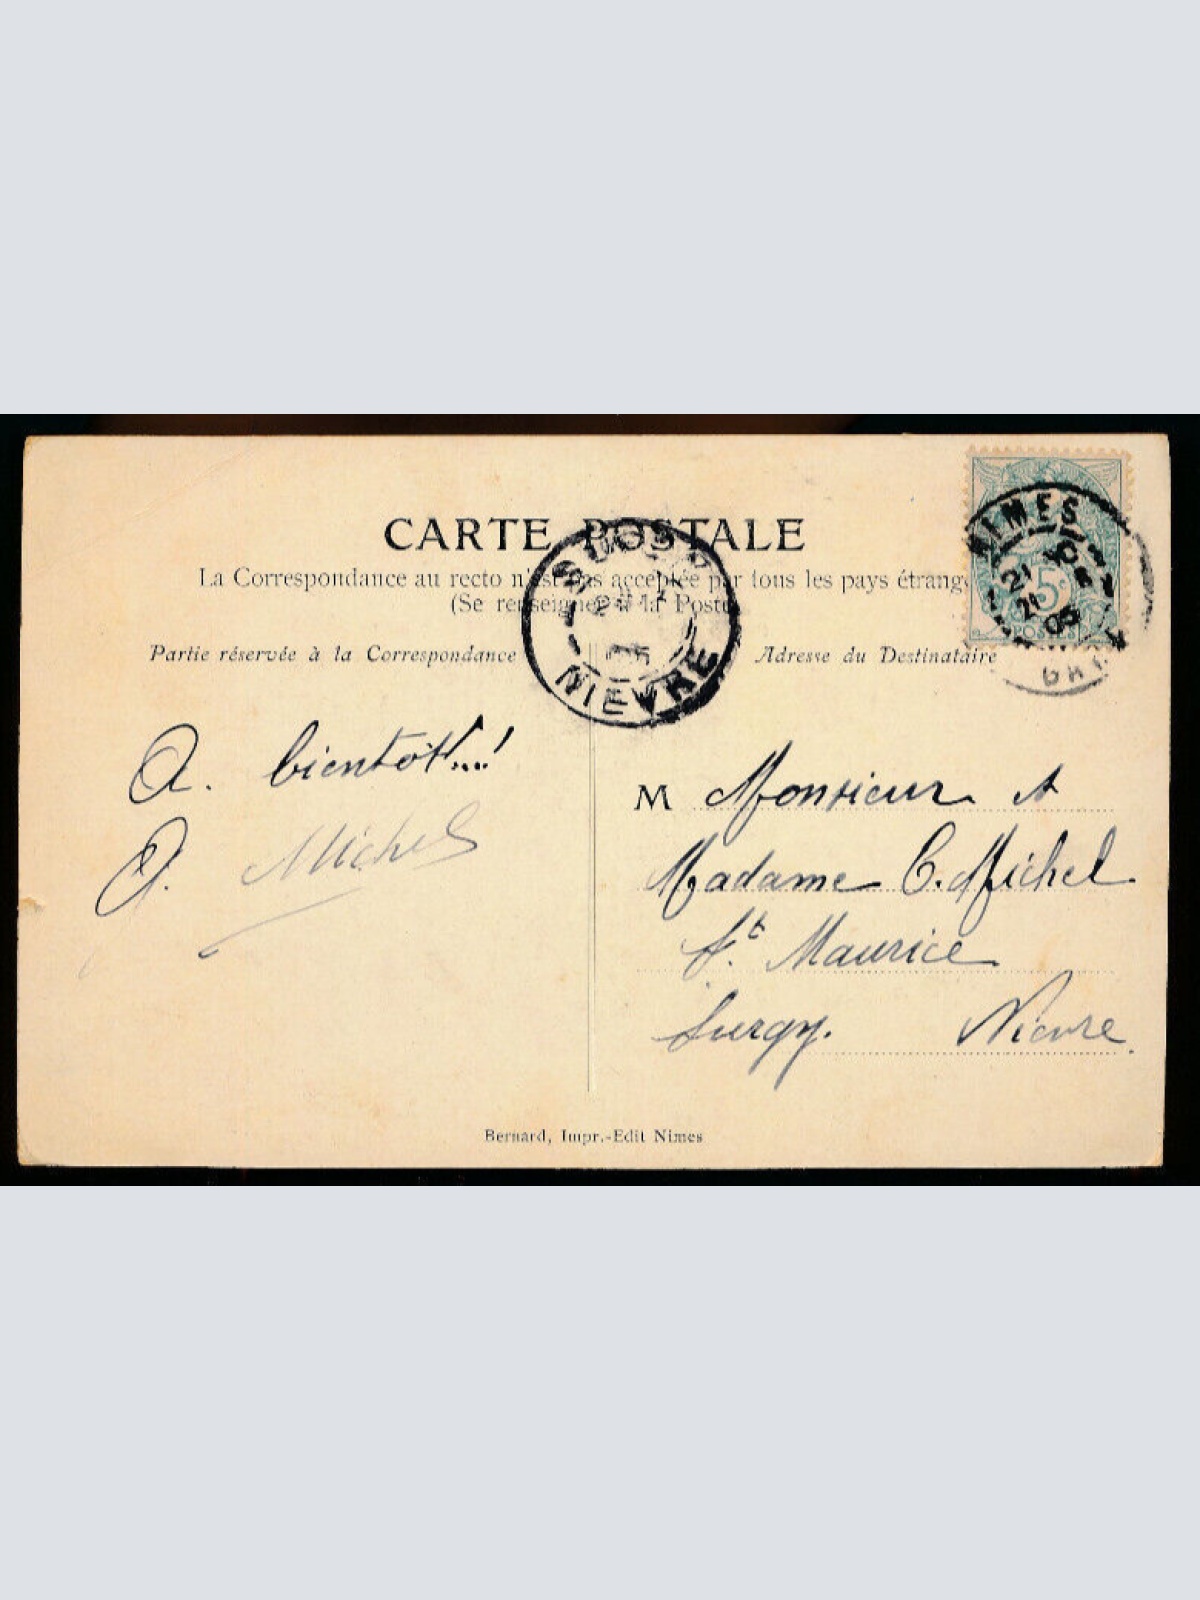 CARTE POSTALE
La Correspondance au recto n'est pas acceptée par tous les pays étrang
(Se renseigner à la Poste
Partie réservée à la Correspondance
Adresse du Destinataire
NIMES
21
21
05
5c
POSTES
SURGY
NIEVRE
A. bientôt...!
Michel
M Monsieur et
Madame C. Michel
St. Maurice
Surgy. Nièvre.
Bernard, Impr.-Edit Nimes